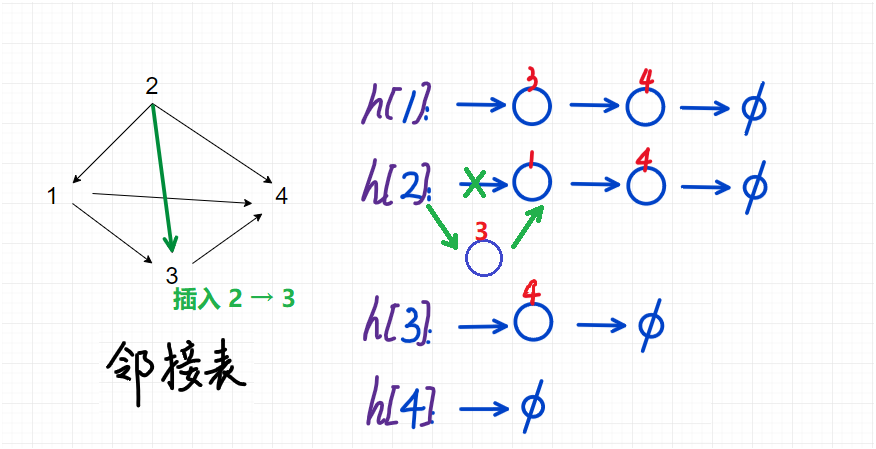 2
1
4
3
插入 2 → 3
邻接表
h[1]: → 3 → 4 → ∅
h[2]: → 1 → 4 → ∅
3
h[3]: → 4 → ∅
h[4]: → ∅